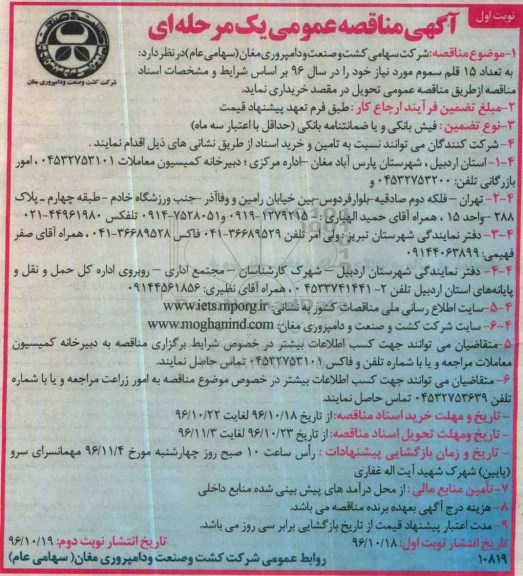 نوبت اول
آگهی مناقصه عمومی یک مرحله ای
شرکت کشت و صنعت و دامپروری مغان
۱-موضوع مناقصه: شرکت سهامی کشت و صنعت و دامپروری مغان (سهامی عام) در نظر دارد:
به تعداد ۱۵ قلم سموم مورد نیاز خود را در سال ۹۶ بر اساس شرایط و مشخصات اسناد
مناقصه از طریق مناقصه عمومی تحویل در مقصد خریداری نماید.
۲-مبلغ تضمین فرآیند ارجاع کار : طبق فرم تعهد پیشنهاد قیمت
۳-نوع تضمین : فیش بانکی و یا ضمانتنامه بانکی (حداقل با اعتبار سه ماه)
۴- شرکت کنندگان می توانند نسبت به تامین و خرید اسناد از طریق نشانی های ذیل اقدام نمایند .
۴-۱- استان اردبیل ، شهرستان پارس آباد مغان -اداره مرکزی ؛ دبیرخانه کمیسیون معاملات ۰۴۵۳۲۷۵۳۱۰۱ ، امور
بازرگانی تلفن: ۰۴۵۳۲۷۵۳۲۰۰ و
۴-۲- تهران - فلکه دوم صادقیه-بلوار فردوس-بین خیابان رامین و وفاآذر -جنب ورزشگاه خادم - طبقه چهارم - پلاک
۲۸۸ -واحد ۱۵ ، همراه آقای حمید الهیاری : ۱۲۷۹۲۱۵-۰۹۱۹ و۷۵۲۸۰۵۱-۰۹۱۴ تلفکس ۴۴۹۶۱۹۸۰-۰۲۱
۴-۳- دفتر نمایندگی شهرستان تبریز: ولی امر تلفن ۳۶۶۸۹۵۲۹-۰۴۱ فاکس ۳۶۶۸۹۵۲۸-۰۴۱ ، همراه آقای صفر
فهیمی: ۰۹۱۴۴۰۶۳۸۹۹
۴-۴- دفتر نمایندگی شهرستان اردبیل - شهرک کارشناسان - مجتمع اداری - روبروی اداره کل حمل و نقل و
پایانه‌های استان اردبیل تلفن ۲- ۰۴۵۳۳۷۴۱۴۴۱ ، همراه آقای نظیری: ۰۹۱۴۴۵۶۱۸۵۶
۴-۵- سایت اطلاع رسانی ملی مناقصات کشور به نشانی: www.iets.mporg.ir
۴-۶- سایت شرکت کشت و صنعت و دامپروری مغان: www.moghanind.com
۵-متقاضیان می توانند جهت کسب اطلاعات بیشتر در خصوص شرایط برگزاری مناقصه به دبیرخانه کمیسیون
معاملات مراجعه و یا با شماره تلفن و فاکس ۰۴۵۳۲۷۵۳۱۰۱ تماس حاصل نمایند.
۶- متقاضیان می توانند جهت کسب اطلاعات بیشتر در خصوص موضوع مناقصه به امور زراعت مراجعه و یا با شماره
تلفن ۰۴۵۳۲۷۵۳۶۳۹ تماس حاصل نمایند.
- تاریخ و مهلت خرید اسناد مناقصه: از تاریخ ۹۶/۱۰/۱۸ لغایت ۹۶/۱۰/۲۲
- تاریخ ومهلت تحویل اسناد مناقصه: از تاریخ ۹۶/۱۰/۲۳ لغایت ۹۶/۱۱/۳
- تاریخ و زمان بازگشایی پیشنهادات : رأس ساعت ۱۰ صبح روز چهارشنبه مورخ ۹۶/۱۱/۴ مهمانسرای سرو
(پایین) شهرک شهید آیت اله غفاری
۷-تأمین منابع مالی : از محل درآمد های پیش بینی شده منابع داخلی
۸- هزینه درج آگهی بعهده برنده مناقصه می باشد.
۹- مدت اعتبار پیشنهاد قیمت از تاریخ بازگشایی برابر سی روز می باشد.
تاریخ انتشار نوبت اول: ۹۶/۱۰/۱۸ تاریخ انتشار نوبت دوم: ۹۶/۱۰/۱۹
۱۰۸۱۹ روابط عمومی شرکت کشت و صنعت و دامپروری مغان( سهامی عام)